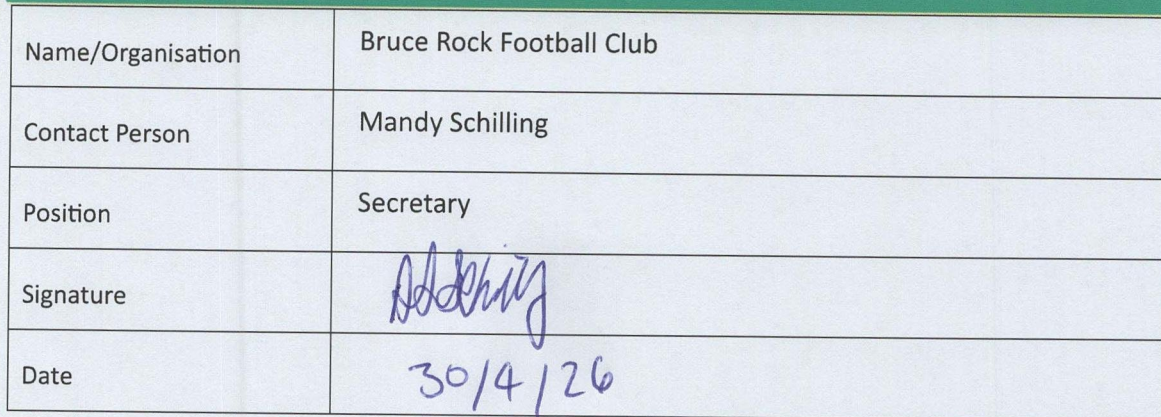 Name/Organisation Bruce Rock Football Club
Contact Person Mandy Schilling
Position Secretary
Signature
Date 30/4/26